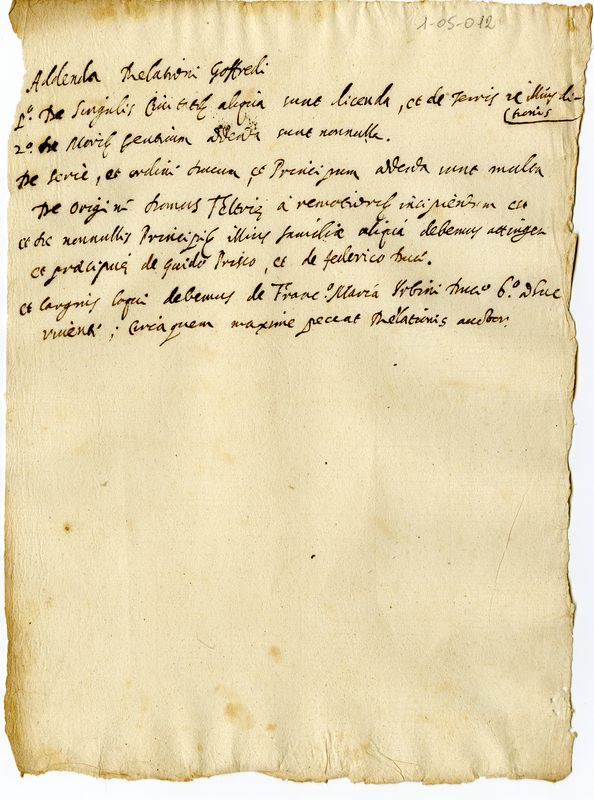 1-05-012
Addenda Relationi Goffredi
1.º De Singulis aliqua sunt dicenda, et de Terris illius di-
ctionis
2.º De gentium addenda sunt nonnulla.
De Serie, et ordine Ducum, et Principum addenda sunt multa
De Origine Domus à incipientium est
et de nonnullis illius familiæ aliqua debemus attingere
et præcipuè de Guido Prisco, et de Federico Duce.
et largius loqui debemus de Franc.º Maria Urbini 6.º
; circa quem maxime peccat Relationis auctor.